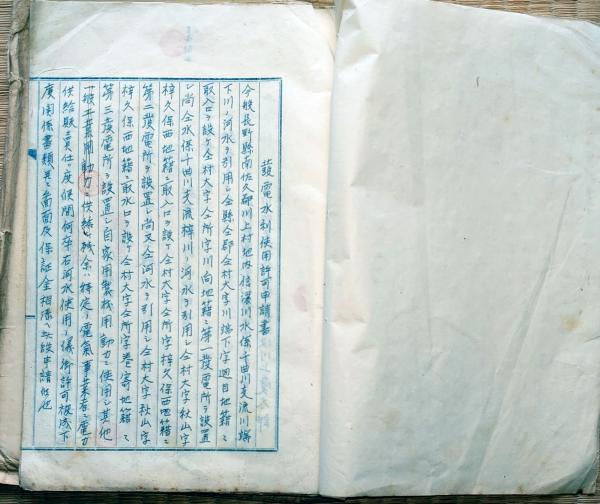 發電水利使用許可申請書
今般長野縣南佐久郡川上村地内信濃川水系千曲川支流川端
下川ノ河水ヲ引用シ仝縣仝郡仝村大字川端下字廻目地籍ニ
取入口ヲ設ケ仝村大字仝所字川向地籍ニ第一發電所ヲ設置
シ尚仝水系千曲川支流梓川ノ河水ヲ引用シ仝村大字秋山字
梓久保西地籍ニ取入口ヲ設ケ仝村大字仝所字梓久保西地籍ニ
第二發電所ヲ設置シ尚又仝河水ヲ引用シ仝村大字秋山字
梓久保西地籍ニ取水口ヲ設ケ仝村大字仝所字巻寄地籍ニ
第三發電所ヲ設置シ自家用機械用動力ニ使用シ其他
一般工業用動力ニ供給シ残余ハ特定ノ電氣事業者ニ電力
供給販賣仕度候間何卒右河水使用ノ儀御許可相成下
度関係書類并ニ圖面及保証金相添ヘ此段申請候也